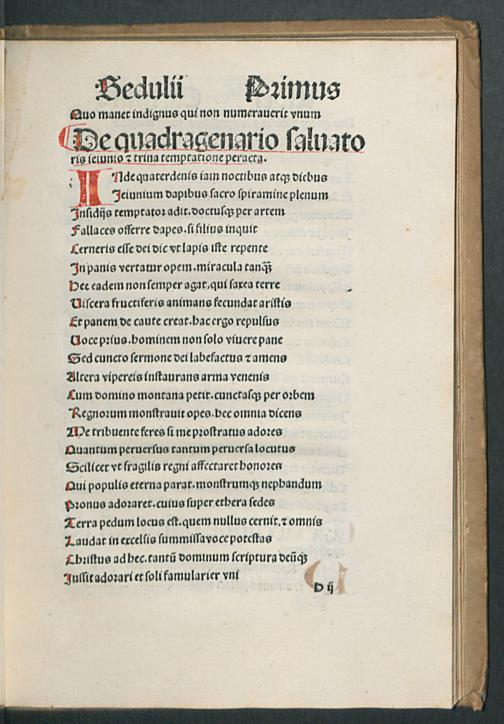 Sedulii Primus
Quo manet indignus qui non numerauerit vnum
De quadragenario saluato
ris ieiunio ⁊ trina temptatione peracta.
INde quaterdenis iam noctibus atqꝫ diebus
Ieiunium dapibus sacro spiramine plenum
Insidijs temptator adit. doctusqꝫ per artem
Fallaces offerre dapes. si filius inquit
Cerneris esse dei dic vt lapis iste repente
In panis vertatur opem. miracula tanqꝫ̃
Hec eadem non semper agat. qui saxea terre
Viscera fructiferis animans fecundat aristis
Et panem de caute creat. hac ergo repulsus
Uoce prius. hominem non solo viuere pane
Sed cuncto sermone dei labefactus ⁊ amens
Altera vipereis instaurans arma venenis
Cum domino montana petit. cunctasqꝫ per orbem
Regnorum monstrauit opes. hec omnia dicens
Me tribuente feres si me prostratus adores
Quantum peruersus tantum peruersa locutus
Scilicet vt fragilis regni affectaret honores
Qui populis eterna parat. monstrumqꝫ nephandum
Pronus adoraret. cuius super ethera sedes
Terra pedum locus est. quem nullus cernit. ⁊ omnis
Laudat in excelsis summissa voce potestas
Christus ad hec. tantū dominum scriptura deūqꝫ
Iussit adorari et soli famularier vni
D ij